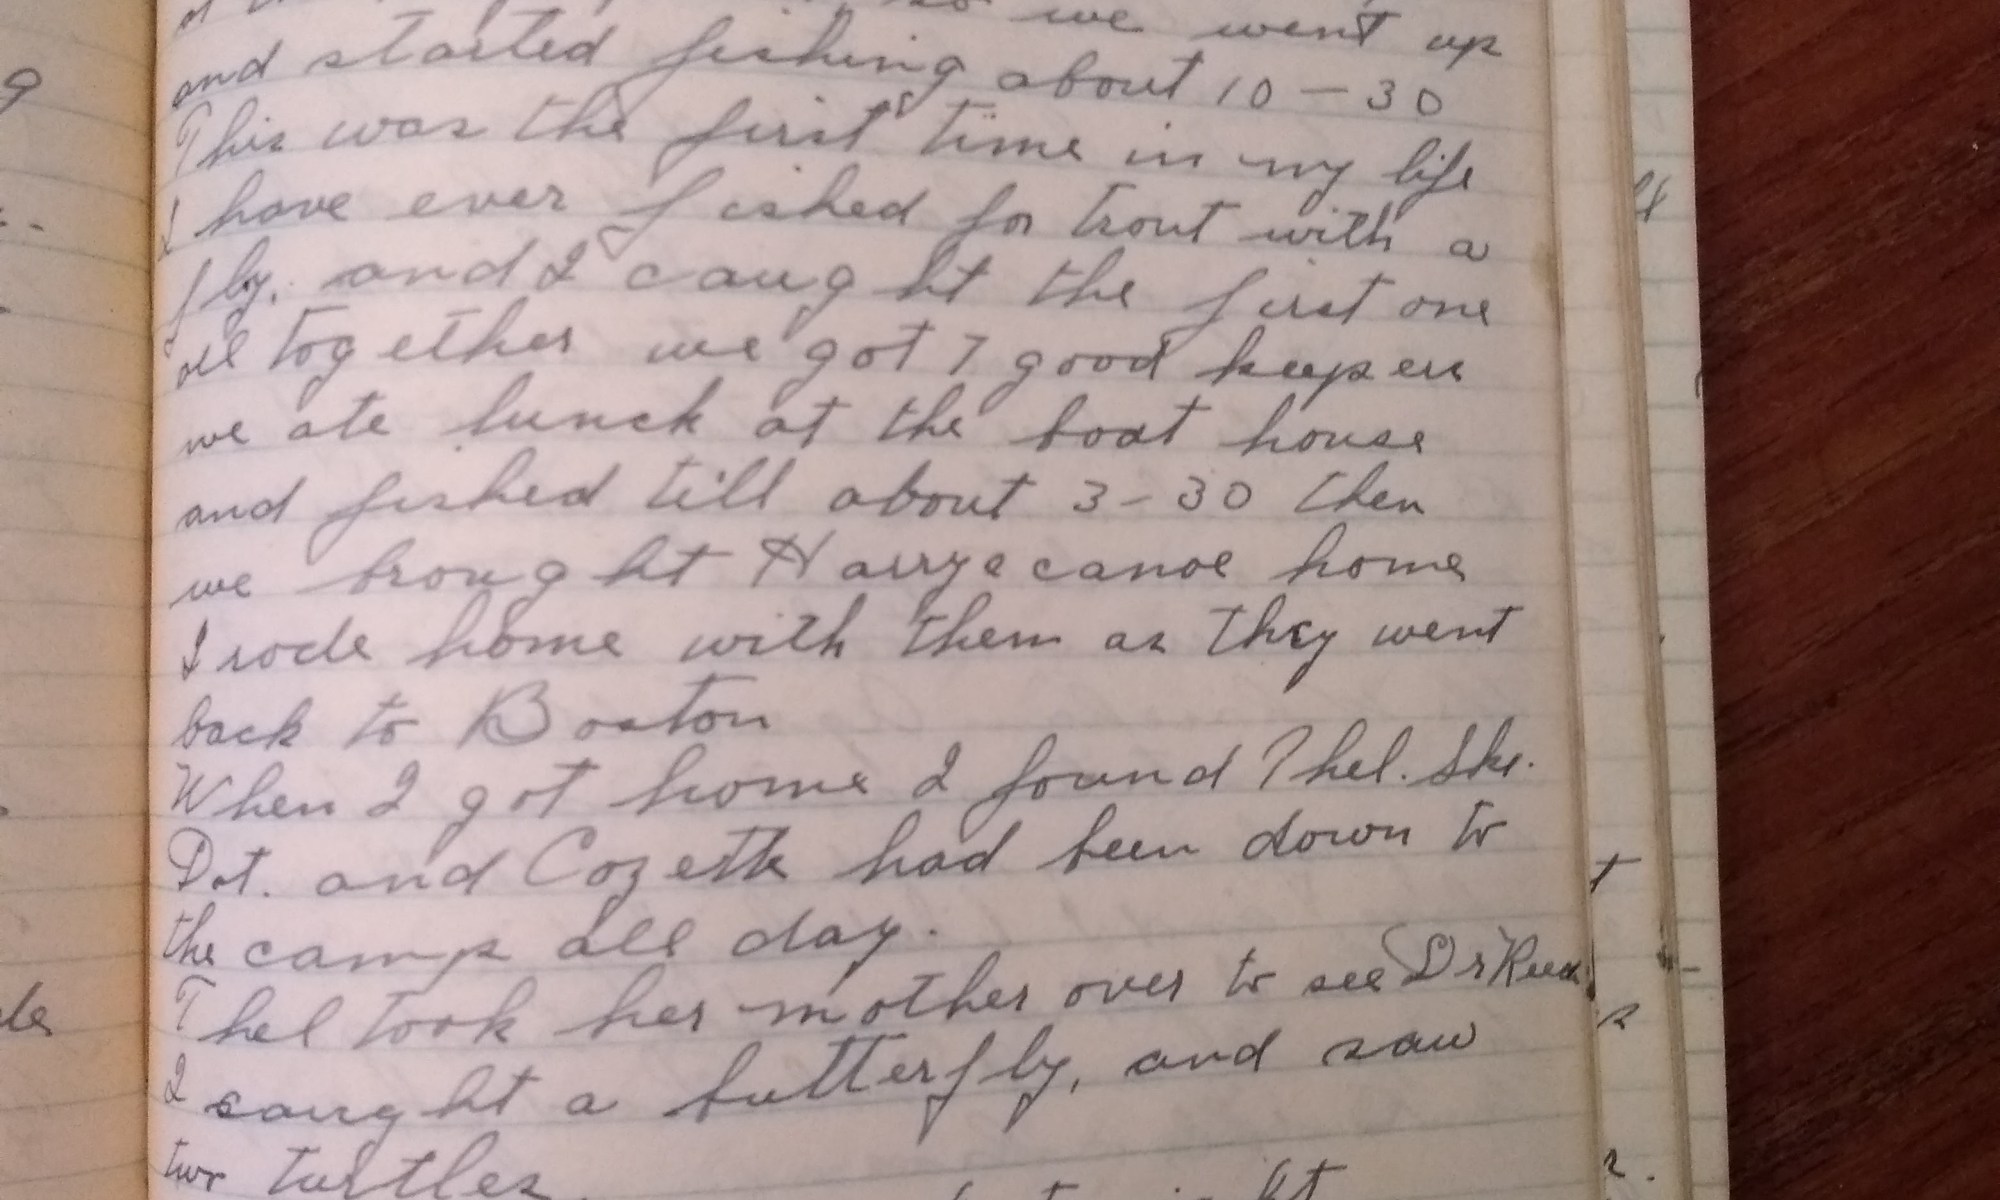 so we went up
and started fishing about 10-30
This was the first time in my life
I have ever fished for trout with a
fly. and I caught the first one
all together we got 7 good keepers
we ate lunch at the boat house
and fished till about 3-30 then
we brought Harrys canoe home
I rode home with them as they went
back to Boston
When I got home I found Thel. Shr.
Dot. and Cozette had been down to
the camp all day.
Thel took her mother over to see Dr Reed.
I caught a butterfly, and saw
two turtles.